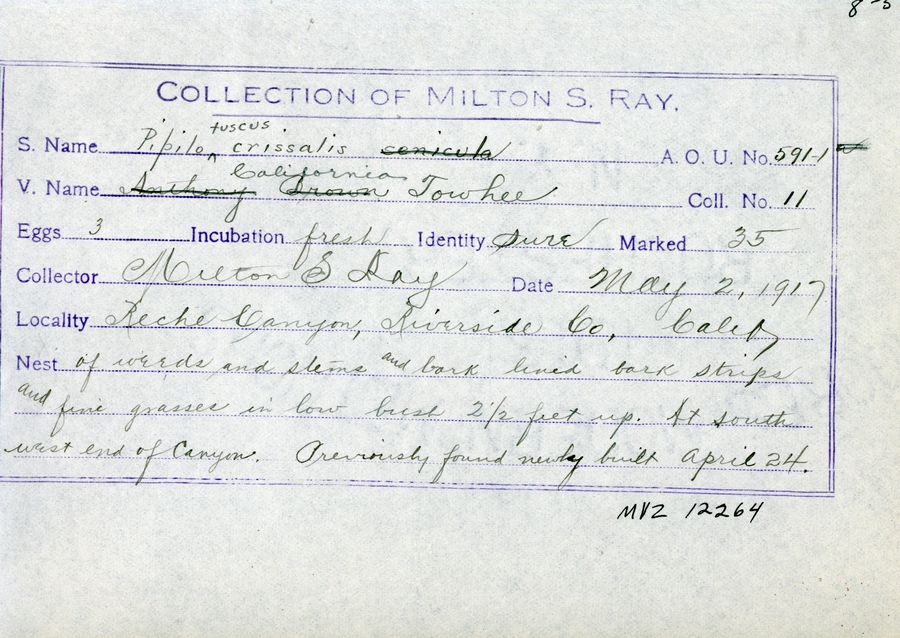 8-5
COLLECTION OF MILTON S. RAY.
fuscus
S. Name Pipilo ^ crissalis senicula A. O. U. No. 591-1
California
V. Name Anthony Brown Towhee Coll. No. 11
Eggs 3 Incubation fresh Identity sure Marked 35
Collector Milton S Ray Date May 2, 1917
Locality Reche Canyon, Riverside Co, Calif
Nest of weeds and stems and bark lined bark strips
and fine grasses in low bush 2 1/2 feet up. At south
west end of Canyon. Previously found newly built April 24.
MVZ 12264